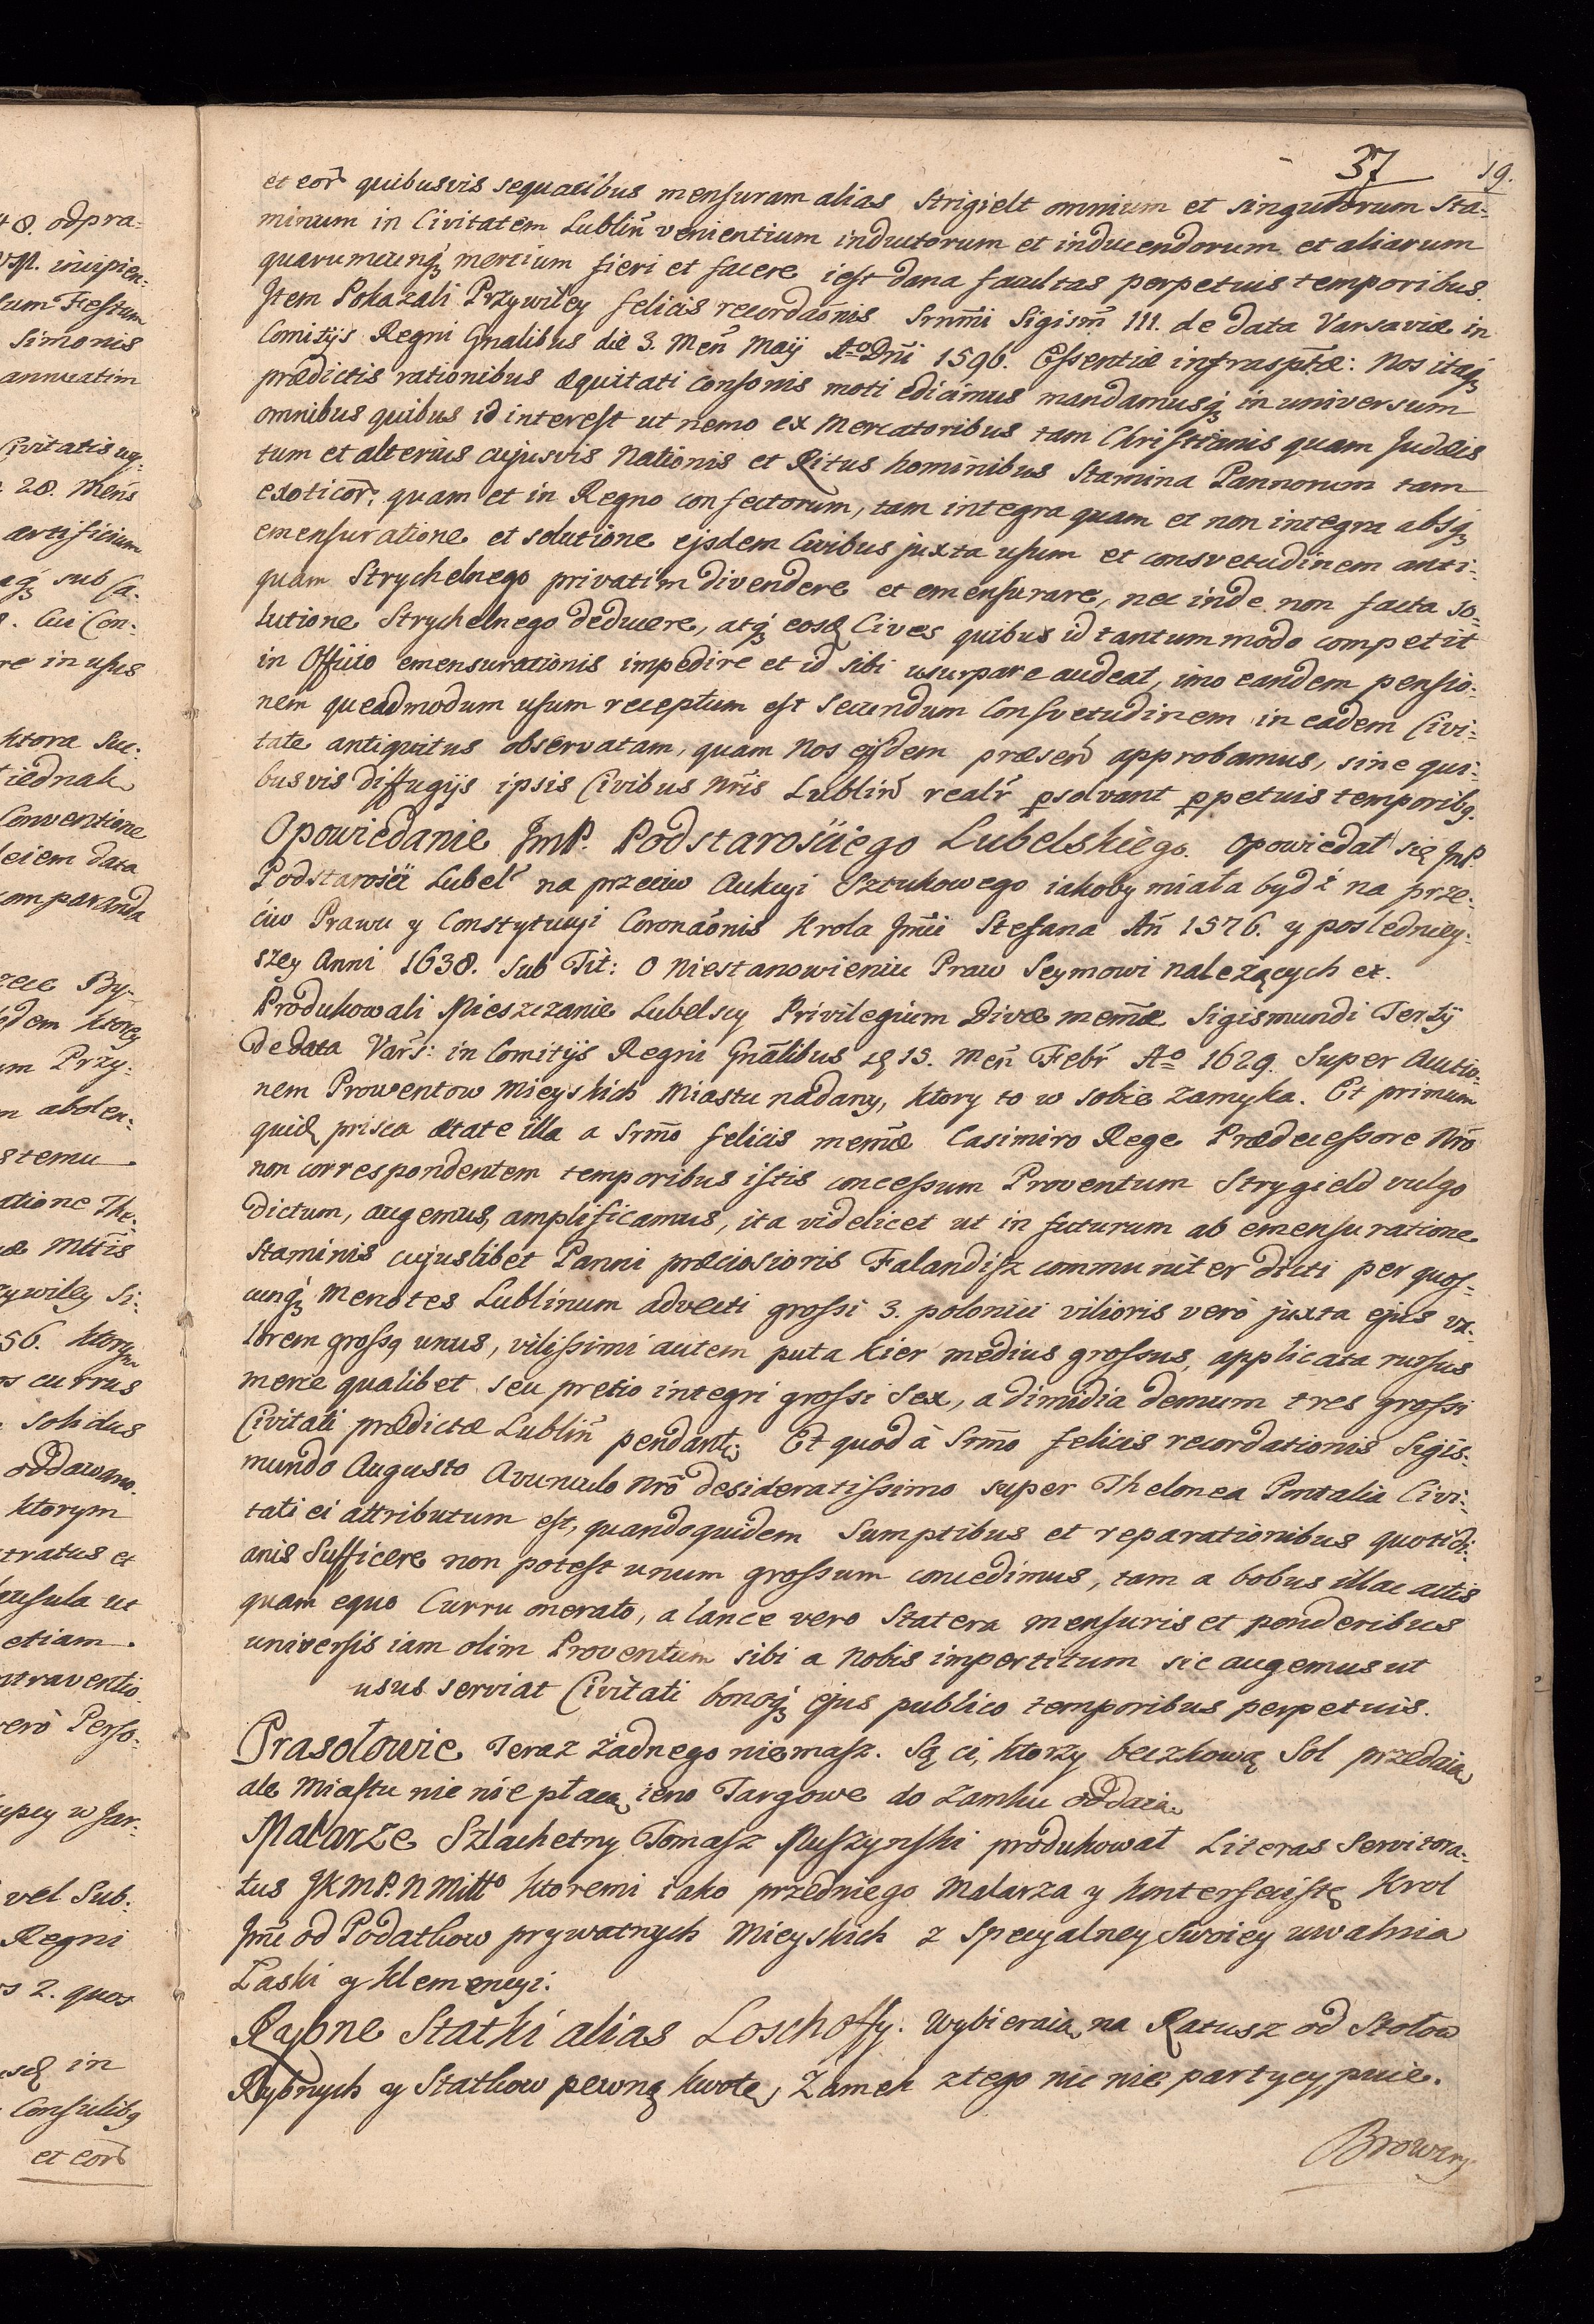 37 19.
et eor̃ quibusvis sequacibus mensuram alias Strigielt omnium et singulorum Sta-
minum in Civitatem Lubliñ venientium inductorum et inducendorum et aliarum
quarumcunq́ꝫ mercium fieri et facere iest dana facultas perpetuis temporibus.
Item Pokazali Przywiley felicis recordãonis Srnm̃i Sigism̃ III. de data Varsaviæ in
Comitijs Regni Gñalibus die 3. Meñ Maij Aº Dñi 1596. Essentiæ infrasp̃tæ: Nos itaq́ꝫ
prædictis rationibus æquitati consonis moti edicimus mandamusq́ꝫ in universum
omnibus quibus id interest ut nemo ex Mercatoribus tam Christianis quam Judæis
tum et alterius cujusvis Nationis et Ritus hominibus Stamina Pannorum tam
exoticor̃: quam et in Regno confectorum, tam integra quam et non integra absq́ꝫ
emensuratione et solutione ejsdem Civibus juxta usum et consvetudinem anti-
quam Strychelnego privatim divendere et emensurare, nec inde non facta so-
lutione Strychelnego deducere, atq́ꝫ eosd Cives quibus id tantum modo competit
in Officio emensurationis impedire et id sibi usurpare audeat, imo eandem pensio-
nem queadmodum usum receptum est secundum Consvetudinem in eadem Civi-
tate antiquitus observatam, quam Nos ejsdem præseñ approbamus, sine qui-
busvis diffugijs ipsis Civibus Nr̃is Lubliñ realr̃ ꝑsolvant ꝑpetuis temporibꝗ.
Opowiedanie JmP. Podstarosciego Lubelskiego. Opowiedał się JmP.
Podstarosci Lubel̃ na przeciw Aukcyi Sztukowego iakoby miała bydź na prze-
ciw Prawu y Constytucyi Coronãonis Krola Jm̃ci Stefana Añ 1576. y posledniey-
szey Anni 1638. Sub Tit: O Niestanowieniu Praw Seymowi należących ex.
Produkowali Mieszczanie Lubelscy Privilegium Divæ mem̃æ Sigismundi Tertij
de data Vars̃: in Comitijs Regni Gñalibus 15. Meñ Febr̃ Aº 1629. Super Auctio-
nem Prowentow Mieyskich Miastu nadany, ktory to w sobie zamyka. Et primum
quid prisca ætate illa a Srm̃o felicis mem̃æ Casimiro Rege Prædecessore Nr̃o
non correspondentem temporibus istis concessum Proventum Strygield vulgo
dictum, augemus, amplificamus, ita videlicet ut in futurum ab emensuratione
Staminis cujuslibet Panni præciosioris Falandisz communiter dicti per quos-
cunq́ꝫ Mercates Lublinum advecti grossi 3. polonici vilioris verò juxta ejus va-
lorem grossꝗ unus, vilissimi autem puta Kier medius grossus, applicata rursus
merce qualibet seu pretio integri grossi Sex, a dimidia demum tres grossi
Civitati prædictæ Lubliñ pendant; Et quod à Srm̃o felicis recordationis Sigis-
mundo Augusto Avunculo Nr̃o desideratissimo super Thelonea Pontalia Civi-
tati ei attributum est, quandoquidem Sumptibus et reparationibus quotidi-
anis Sufficere non potest unum grossum concedimus, tam a bobus illac actis
quam equo Curru onerato, a lance vero Statera mensuris et ponderibus
universis iam olim Proventum sibi a Nobis impertitum sic augemus ut
usus serviat Civitati bonoq́ꝫ ejus publico temporibus perpetuis.
Prasołowie Teraz żadnego niemasz. Są ci, ktorzy beczkową Sol przedaią
ale Miastu nic nie płacą, ieno Targowe do Zamku oddaią
Malarze Szlachetny Tomasz Muszynski produkował Literas Servitora-
tus JKMP. N Miłtto ktoremi iako przedniego Malarza y Konterfecistę Krol
Jm̃ od Podatkow prywatnych Mieyskich z Specyalney Swoiey uwalnia
Łaski y Klemencyi.
Rybne Statki alias Loschoffy. Wybieraią na Ratusz od Stołow
Rybnych y Statkow pewną kwotę, Zamek z tego nic nie partycypuie.
Browary